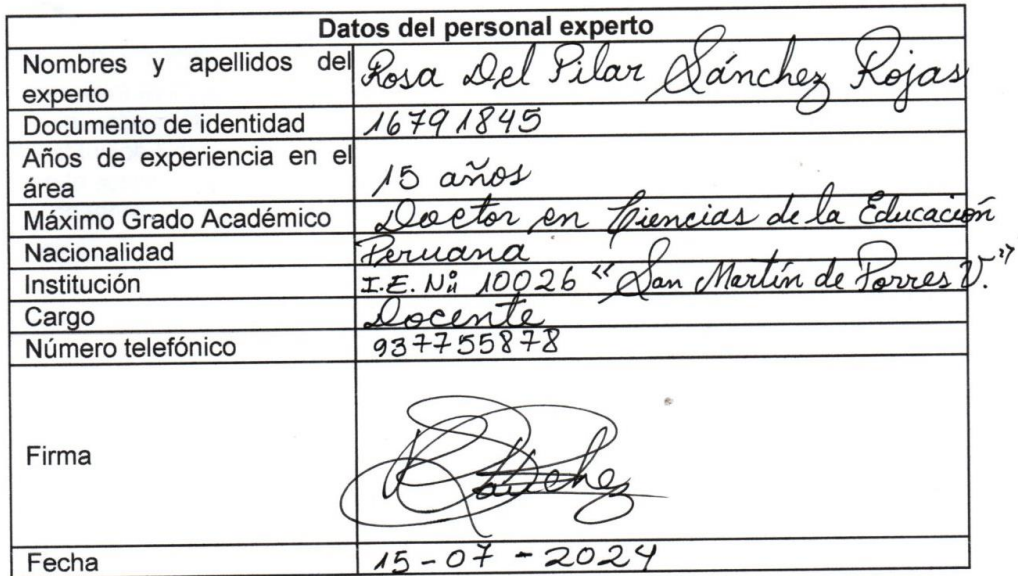 Datos del personal experto
Nombres y apellidos del experto Rosa Del Pilar Sánchez Rojas
Documento de identidad 16791845
Años de experiencia en el área 15 años
Máximo Grado Académico Doctor en Ciencias de la Educación
Nacionalidad Peruana
Institución I.E. Nº 10026 "San Martín de Porres V."
Cargo Docente
Número telefónico 937755878
Firma Sánchez
Fecha 15-07-2024